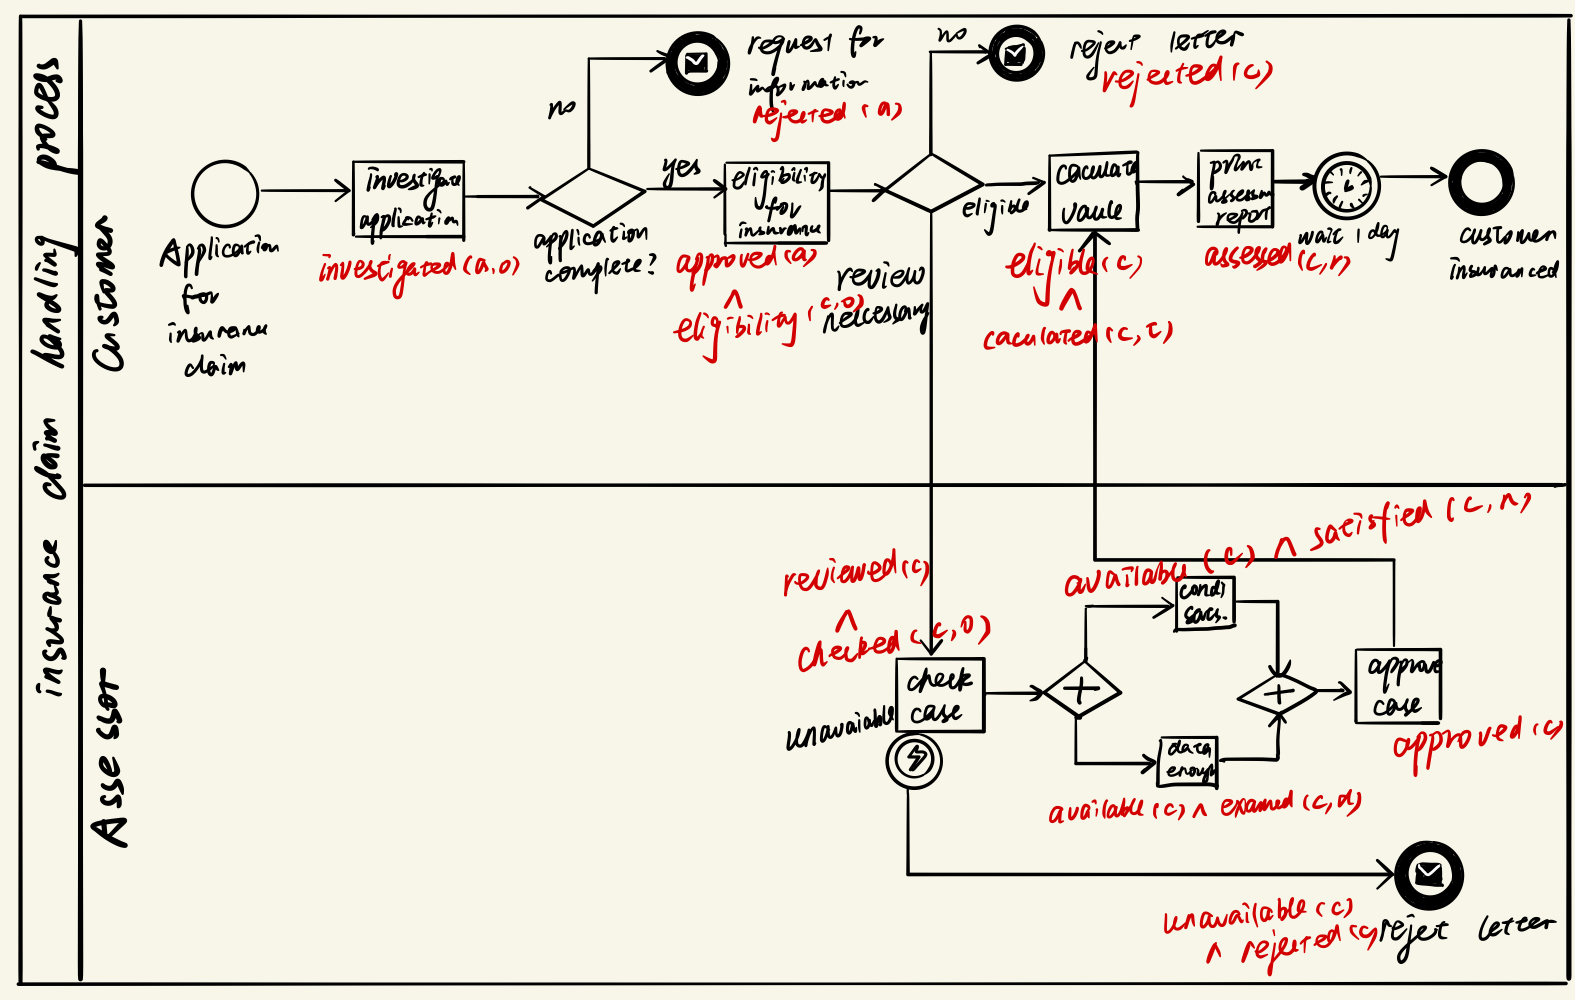 insurance claim handling process
Customer
Assessor
Application
for
insurance
claim
investigate
application
investigated (a,o)
no
application
complete?
yes
request for
information
rejected (a)
eligibility
for
insurance
approved (a)
∧
eligibility (c,o)
no
reject letter
rejected (c)
review
neccessary
eligible
caculate
vaule
eligible (c)
∧
caculated (c,t)
report
assessed (c,r)
wait 1 day
customer
insuranced
reviewed (c)
∧
checked (c,o)
check
case
unavaiable
available (c) ∧ satisfied (c,n)
condi
data
enough
available (c) ∧ examed (c,d)
approve
case
approved (c)
unavailable (c)
∧ rejected (c)
reject letter